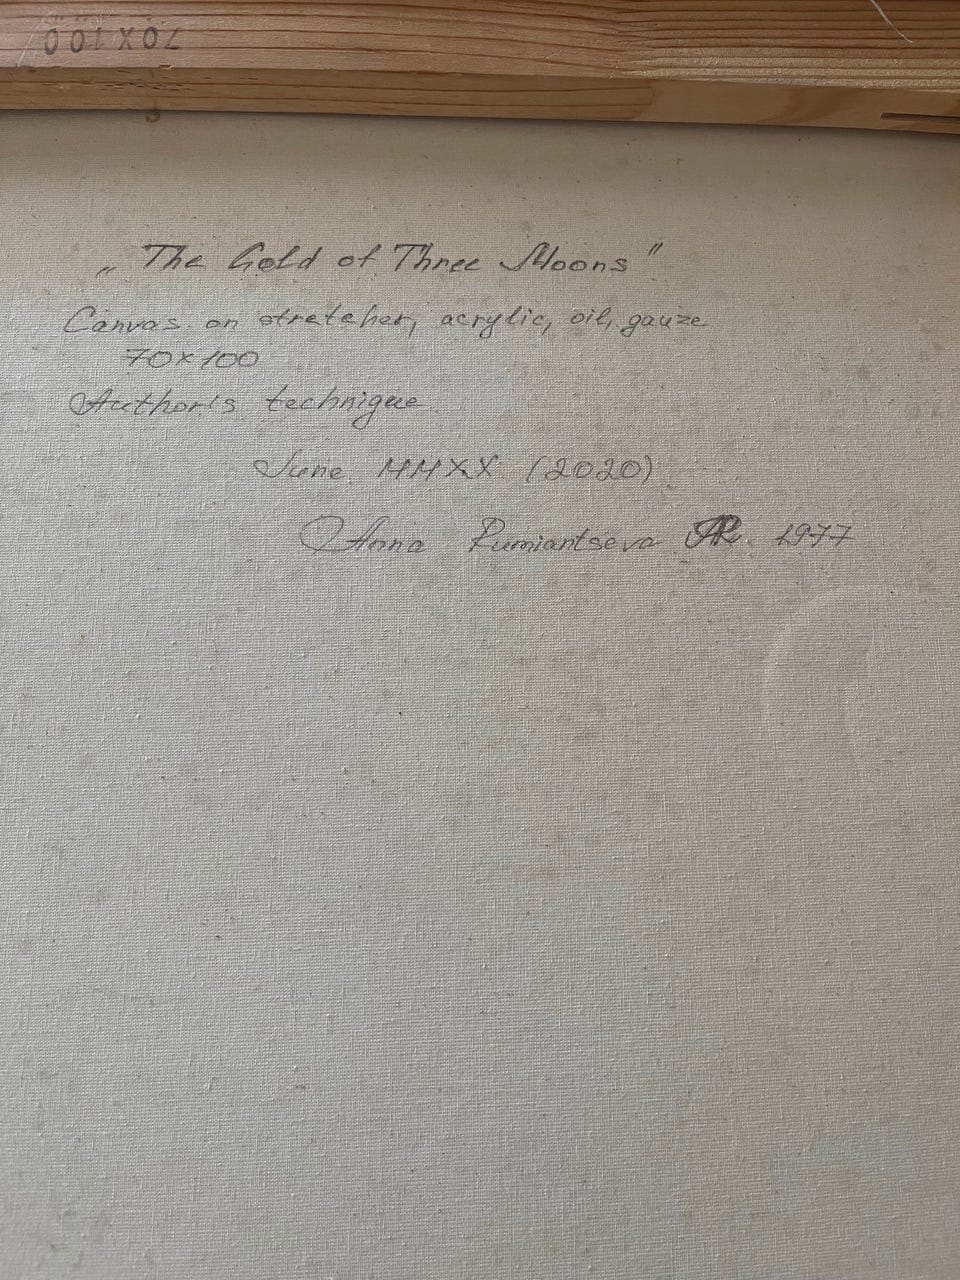 70X100
„The Gold of Three Moons"
Canvas on stretcher, acrylic, oil, gauze
70×100
Author's technique
June MMXX (2020)
Anna Rumiantseva AR 1977